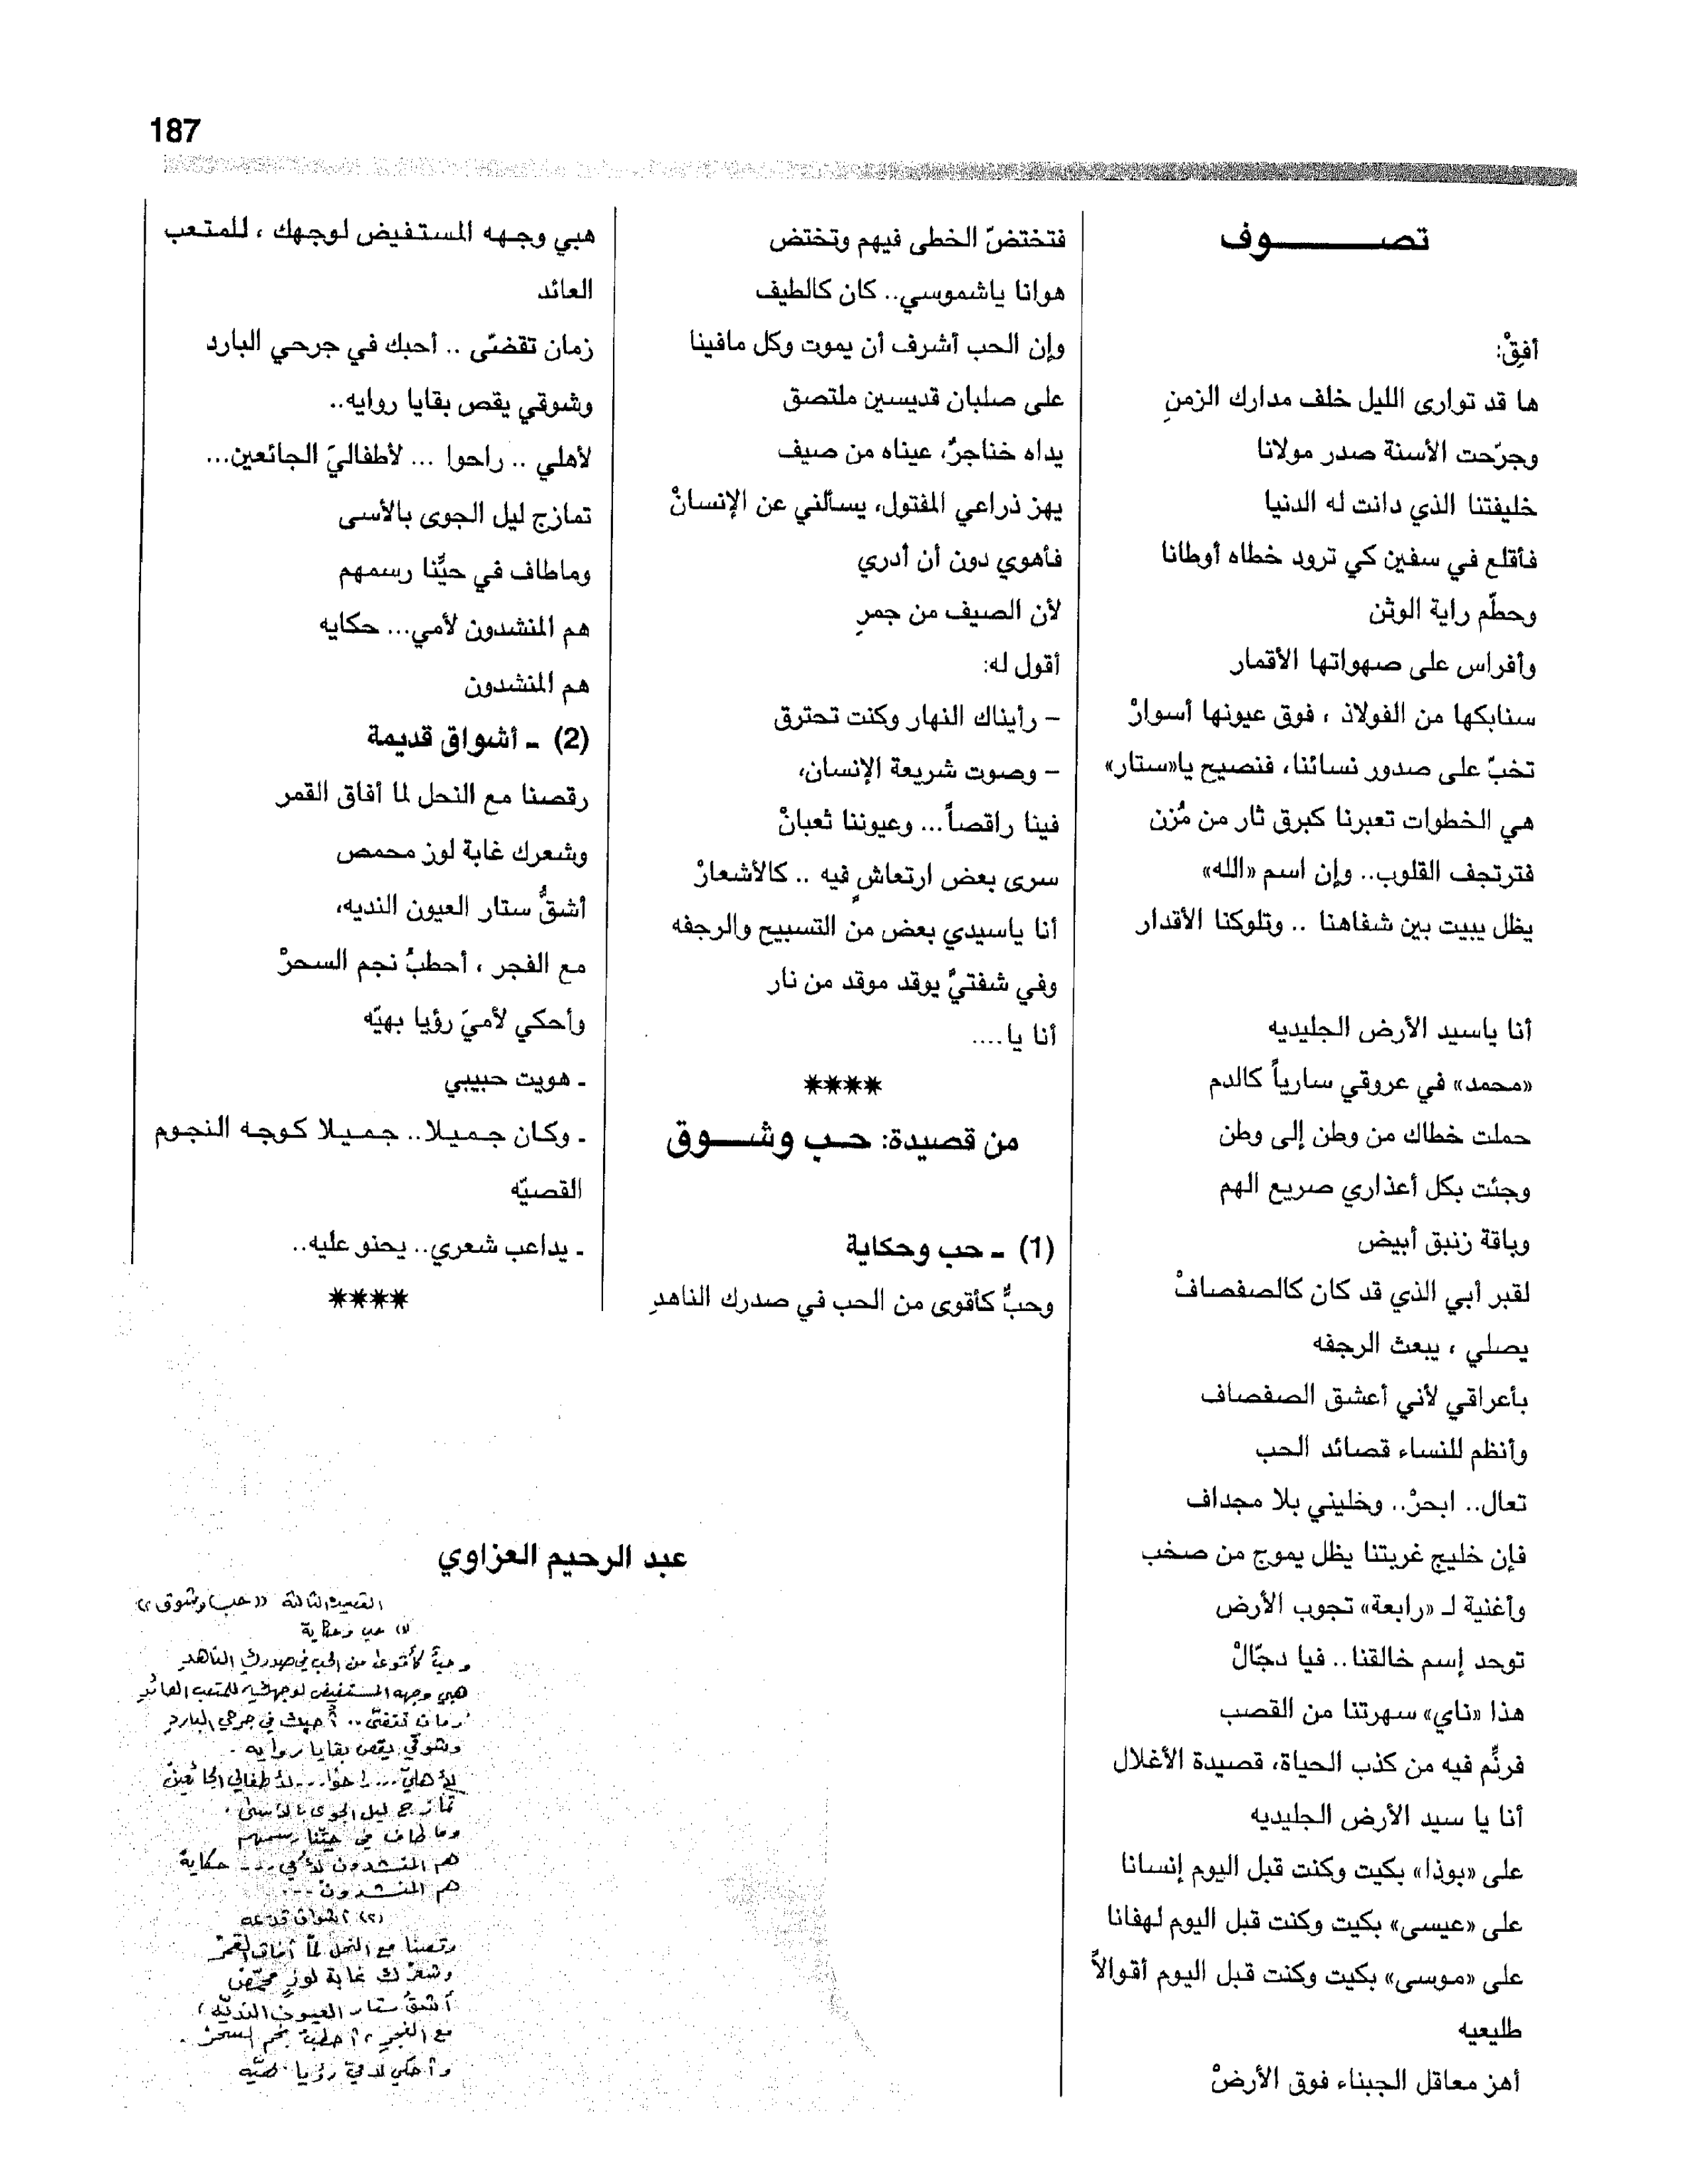 187
تصــــوف
أفِقْ:
ها قد توارى الليل خلف مدارك الزمنِ
وجرّحت الأسنة صدر مولانا
خليفتنا الذي دانت له الدنيا
فأقلع في سفين كي ترود خطاه أوطانا
وحطّم راية الوثن
وأفراس على صهواتها الأقمار
سنابكها من الفولاذ ، فوق عيونها أسوارْ
تخبّ على صدور نسائنا، فنصيح يا«ستار»
هي الخطوات تعبرنا كبرق ثار من مُزن
فترتجف القلوب.. وإن اسم «الله»
يظل يبيت بين شفاهنا .. وتلوكنا الأقدار
أنا ياسيد الأرض الجليديه
«محمد» في عروقي سارياً كالدم
حملت خطاك من وطن إلى وطن
وجئت بكل أعذاري صريع الهم
وباقة زنبق أبيض
لقبر أبي الذي قد كان كالصفصافْ
يصلي ، يبعث الرجفه
بأعراقي لأني أعشق الصفصاف
وأنظم للنساء قصائد الحب
تعال.. ابحرْ.. وخليني بلا مجداف
فإن خليج غربتنا يظل يموج من صخب
وأغنية لـ «رابعة» تجوب الأرض
توحد إسم خالقنا.. فيا دجّالْ
هذا «ناي» سهرتنا من القصب
فرنِّم فيه من كذب الحياة، قصيدة الأغلال
أنا يا سيد الأرض الجليديه
على «بوذا» بكيت وكنت قبل اليوم إنسانا
على «عيسى» بكيت وكنت قبل اليوم لهفانا
على «موسى» بكيت وكنت قبل اليوم أقوالاً
طليعيه
أهز معاقل الجبناء فوق الأرضْ
فتختضّ الخطى فيهم وتختض
هوانا ياشموسي.. كان كالطيف
وإن الحب أشرف أن يموت وكل مافينا
على صلبان قديسين ملتصق
يداه خناجرٌ، عيناه من صيف
يهز ذراعي المفتول، يسألني عن الإنسانْ
فأهوي دون أن أدري
لأن الصيف من جمرِ
أقول له:
– رأيناك النهار وكنت تحترق
– وصوت شريعة الإنسان،
فينا راقصاً... وعيوننا ثعبانْ
سرى بعض ارتعاشٍ فيه .. كالأشعارْ
أنا ياسيدي بعض من التسبيح والرجفه
وفي شفتيَّ يوقد موقد من نار
أنا يا....
****
من قصيدة: حــب وشــــوق
(1) ـ حب وحكاية
وحبٌّ كأقوى من الحب في صدرك الناهدِ
هبي وجهه المستفيض لوجهك ، للمتعب
العائد
زمان تقضّى .. أحبك في جرحي البارد
وشوقي يقص بقايا روايه..
لأهلي .. راحوا ... لأطفاليَ الجائعين...
تمازج ليل الجوى بالأسى
وماطاف في حيِّنا رسمهم
هم المنشدون لأمي... حكايه
هم المنشدون
(2) ـ أشواق قديمة
رقصنا مع النحل لما أفاق القمر
وشعرك غابة لوز محمص
أشقُّ ستار العيون النديه،
مع الفجر ، أحطبُ نجم السحرْ
وأحكي لأميَ رؤيا بهيّه
ـ هويت حبيبي
ـ وكان جميلا.. جميلا كوجه النجوم
القصيّه
ـ يداعب شعري.. يحنو عليه..
****
عبد الرحيم العزاوي
القصيدة الثالثة ((حب وشوق))
(١) حب وحكاية
وحبٌّ كأقوى من الحب في صدرك الناهدِ
هبي وجهه المستفيض لوجهك، للمتعب العائد
زمان تقضّى.. أحبك في جرحي البارد
وشوقي يقص بقايا روايه.
لأهلي... راحوا... لأطفالي الجائعين
تمازج ليل الجوى بالأسى.
وما طاف في حيّنا رسمهم
هم المنشدون لأمي... حكاية
هم المنشدون...
(٢) أشواق قديمه
رقصنا مع النحل لمّا أفاق القمرْ
وشعرك غابة لوزٍ محمّص
أشقُّ ستار العيون النديّه،
مع الفجر، أحطبُ نجم السحرْ.
وأحكي لأميَ رؤيا بهيّه